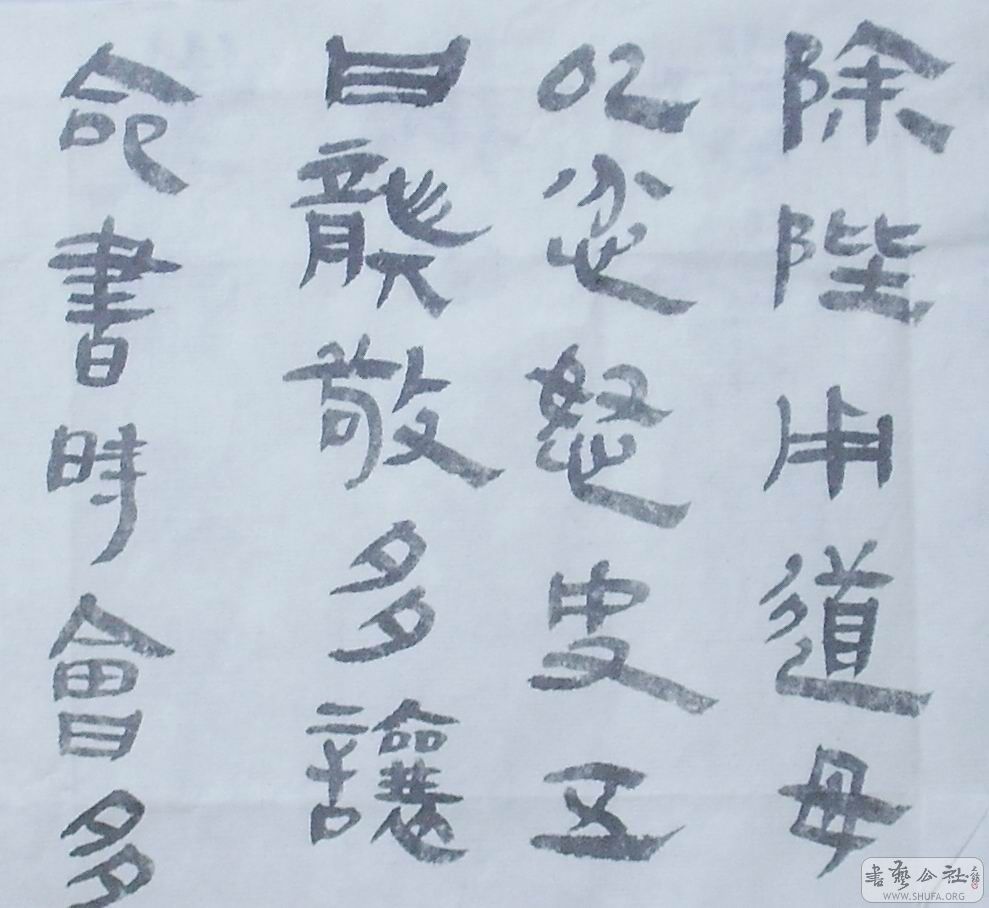 除陛甬道毋
以忿怒夬五
曰龏敬多讓
命書時會多
書藝公社
WWW.SHUFA.ORG